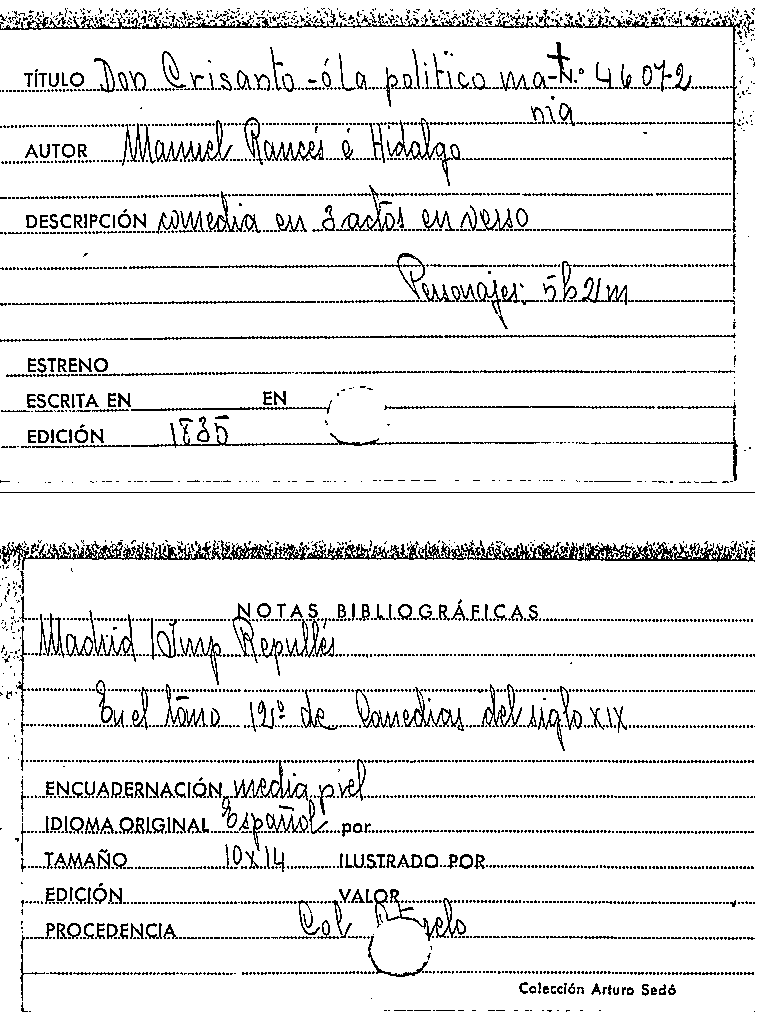 TÍTULO Don Crisanto - ó la politico ma- N.º 46072
nia
AUTOR Manuel Rancés é Hidalgo
DESCRIPCIÓN comedia en 3 actos en verso
Personajes: 5h 2m
ESTRENO
ESCRITA EN EN
EDICIÓN 1835
NOTAS BIBLIOGRÁFICAS
Madrid Imp Repullés
En el tomo 12º de Comedias del siglo XIX
ENCUADERNACIÓN media piel
IDIOMA ORIGINAL Español por
TAMAÑO 10x14 ILUSTRADO POR
EDICIÓN VALOR
PROCEDENCIA Col
Colección Arturo Sedó